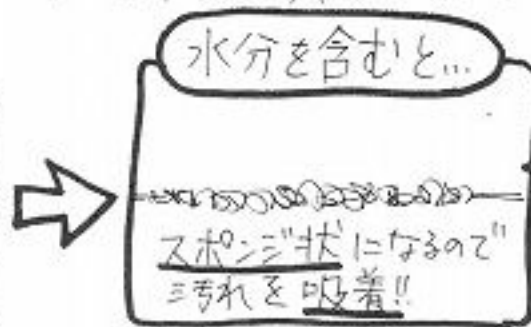 水分を含むと…
スポンジ状になるので
汚れを吸着!!